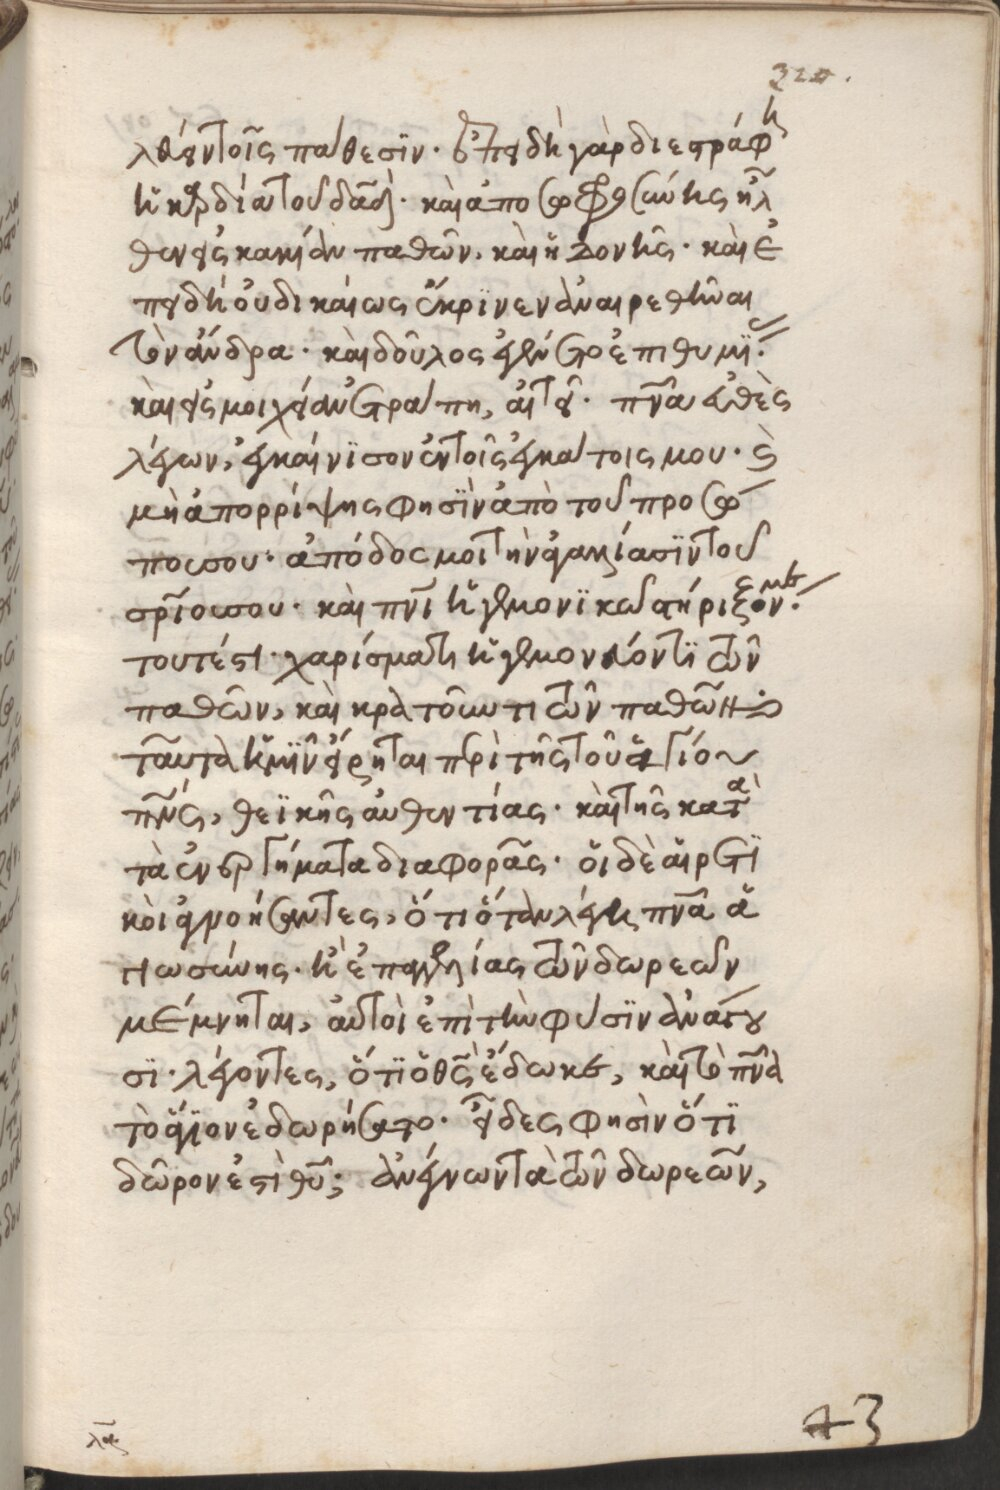 320.
λθεῖν τοῖς πάθεσϊν. ἐπειδὴ γὰρ διεστράφη
ἡ καρδία τοῦ δαδ. καὶ ἀπο σωφροσύνης ἦλ
θεν εἰς κακίαν παθῶν, καὶ ἡδονῆς. καὶ ἐ
πειδὴ οὐ δικαίως ἔκρϊνεν ἀναιρεθῆναι
τὸν ἄνδρα. καὶ δοῦλος ἐγένετο ἐπιθυμϊας.
καὶ εἰς μοιχείαν ἐτράπη, αἰτεῖ. πνα εὐθὲς
λέγων, ἐγκαίνϊσον ἐν τοῖς ἐγκάτοις μου. καὶ
μὴ ἀπορρίψης φησϊν ἀπὸ τοῦ προσώ
που σου. ἀπόδος μοι τὴν ἀγαλλίασϊν τοῦ
σρίου σου. καὶ πνι ἡγεμονϊκῶ στήριξόν με.
τουτέστι χαρίσματι ἡγεμονεύοντϊ τῶν
παθῶν, καὶ κρατοῦντι τῶν παθῶν.
ταῦτα ἡμῖν εἴρηται περὶ τῆς τοῦ ἁγίου
πνς, θεϊκῆς αὐθεντίας. καὶ τῆς κατὰ
τὰ ἐνεργήματα διαφορᾶς. οἱ δὲ αἱρετϊ
κοὶ ἀγνοήσαντες, ὅτι ὅταν λέγη πνα ἁ
γιωσύνης. ἢ ἐπαγγελίας τῶν δωρεῶν
μέμνηται, αὐτοὶ ἐπὶ τὴν φύσϊν ἀνάγου
σϊ. λέγοντες, ὅτϊ ὁ θς ἔδωκε, καὶ τὸ πνα
τὸ ἅγϊον ἐδωρήσατο. εἶδες φησὶν ὅτϊ
δῶρον ἐστὶ θυ; ἀνέγνων τὰ τῶν δωρεῶν,
43